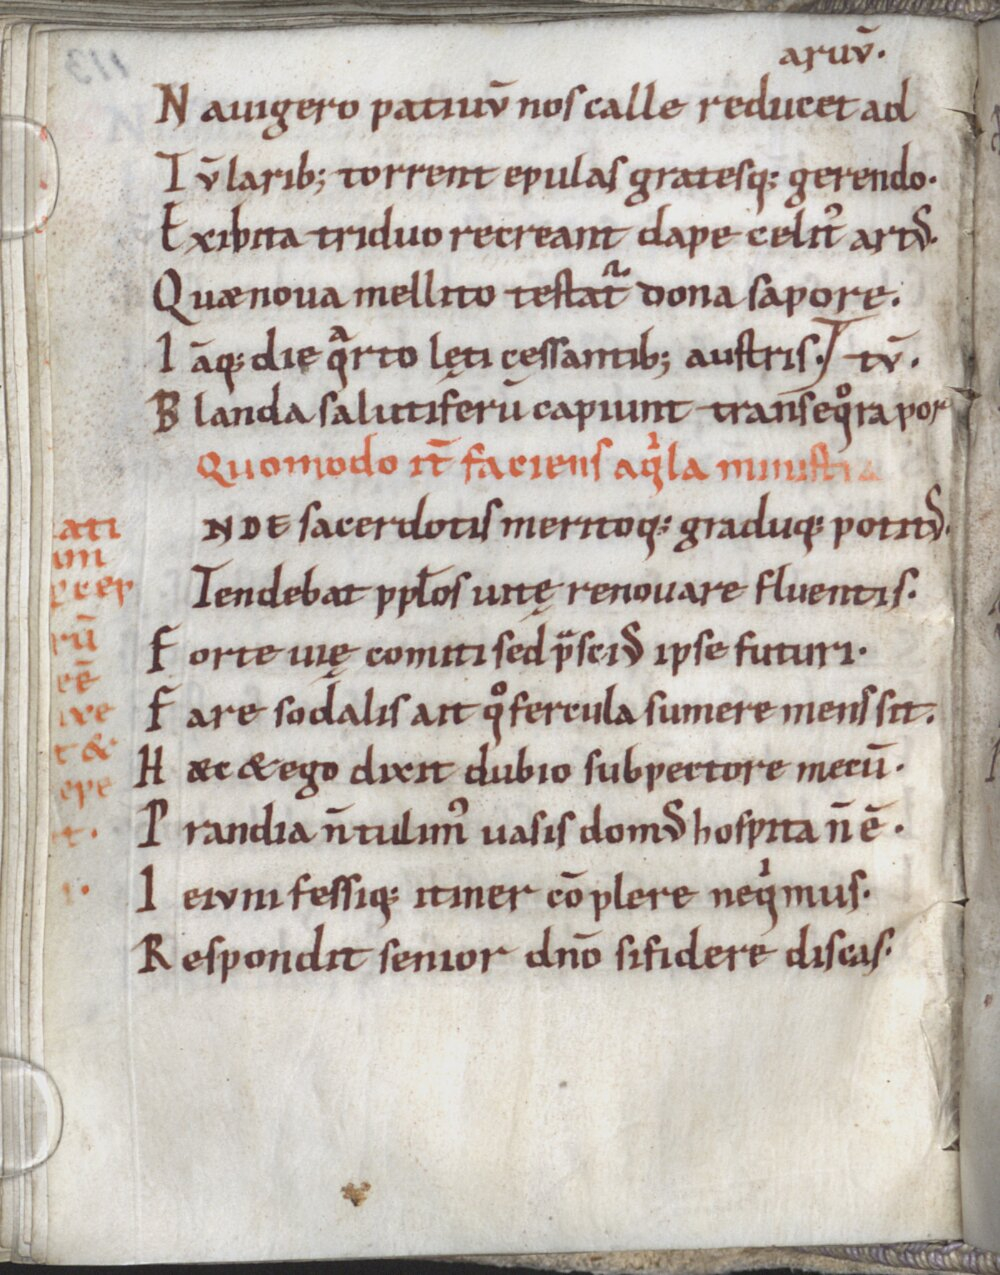 aruū.
N auigero patiuū nos calle reducet ad
T ū larib; torrent epulas gratesq; gerendo.
E xibita triduo recreant dape celit᷒ art᷒.
Q uæ nova mellito testat᷑ dona sapore.
I āq; die qͣrto lęti cessantib; austris. tū.
B landa salutiferū capiunt trans eqͦra por
Quomodo it̄ faciens aqͥla ministra
NDE sacerdotis meritoq; graduq; potit᷒.
Tendebat pplos uitę renouare fluentis.
F orte uię comiti sed p̄sci᷒ ipse futuri.
F are sodalis ait qͦ fercula sumere mens sit.
H æc & ego dixit dubio sub pectore mecū.
P randia n̄ tulim᷒ uasis dom᷒ hospita n̄ ē.
I eiuni fessiq; itiner cōplere neqͥmus.
R espondit senior dn̄o si fidere discas.
ati
im
ecep
rū
eē
ixe
t &
epe
t.